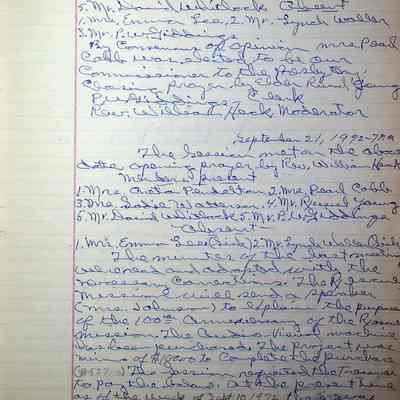 5. Mr. David Whitlock Absent
1. Mrs. Emma Lee, 2. Mr. Lynch Waller
3. Mr. P.W. Giddings
By Consensus of opinion Mrs Pearl
Cobb was elected to be our
Commissioner to the Presbytery.
Closing prayer Elder Russel Young
P.W. Giddings, Clerk
Rev. William Hank Moderator
September 21, 1972-7 P.M
The Session met on the above
date opening prayer by Rev. William Hank
Members present
1. Mrs. Greta Pendelton 2. Mrs. Pearl Cobb
3. Mrs. Sadie Watterson. 4. Mr. Russel Young
5. Mr. David Whitlock 5. Mr. P.W. Giddings
Absent
1. Mrs. Emma Lee (Sick) 2. Mr. Lynch Waller (Sick)
The minutes of the last meeting
were read and adopted with the
necessary Corrections. The Rescue
Mission will send a speaker
(Mrs. Johnson) to explain the purpose
of the 100th Anniversary of the Rescue
Mission. The Audio-Visual machine
has been purchased. The project was
minus to Complete the purchase
The Session requested the Treasurer
to pay the balance. At the present time
as of the week of Sept 10, 1972